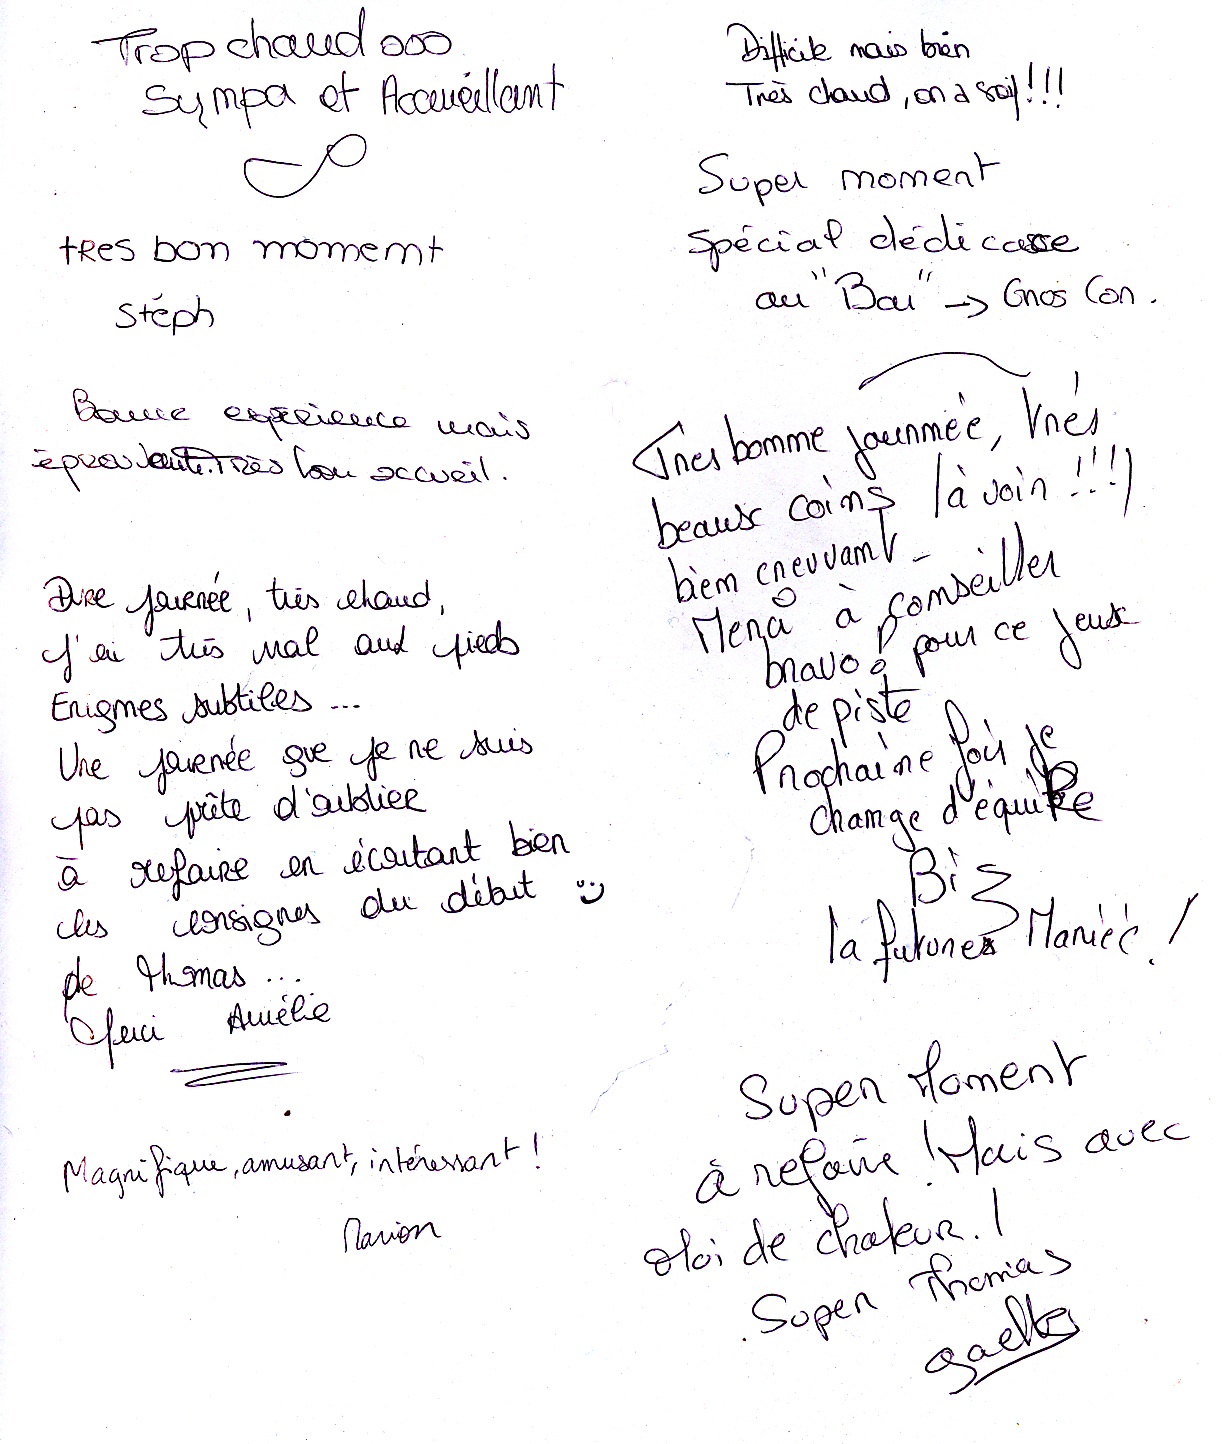 Trop chaud ooo
Sympa et Acceuéillant
tres bon moment
Stéph
Bonne expérience mais
éprouvante. Très bon accueil.
Dure journée, très chaud,
J'ai très mal aux pieds
Enigmes subtiles ...
Une journée que je ne suis
pas prête d'oublier
à refaire en écoutant bien
les consignes du début :)
de thomas ...
Merci Amélie
Magnifique, amusant, intéressant !
Marion
Difficile mais bien
Très chaud, on a soif !!!
Super moment
Spécial dédicace
au "Bou" -> Gros Con.
Tres bonne journnéé, trés
beaux coins (à voir !!!)
bien crevvant -
Merci à conseiller
bravo ! pour ce jeux
de piste
Prochaine fois je
change d'équipe
Biz
la future Mariéé !
Super Moment
à refaire ! Mais avec
Moi de chaleur. !
Super Thomas
gaelle